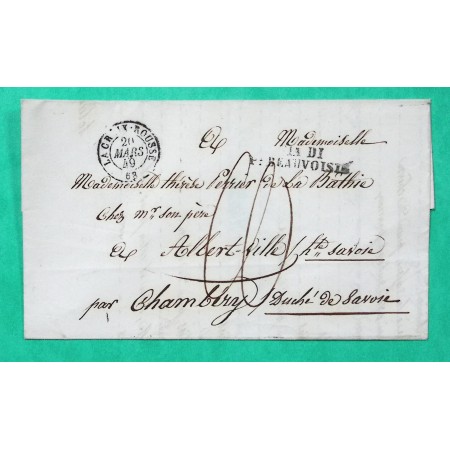 LA CROIX-ROUSSE
20
MARS
49
68
À Mademoiselle
LA DI
Pt BEAUVOISIN
Mademoiselle thérèse Perrier de La Bathie
Chez mr son père
à Albert-ville / hte Savoie
par Chambéry / Duché de Savoie